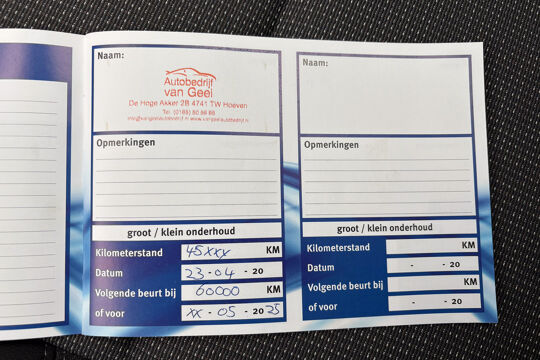 Naam:
Autobedrijf
van Geel
De Hoge Akker 2B 4741 TW Hoeven
Opmerkingen
groot / klein onderhoud
Kilometerstand 45xxx KM
Datum 23-04-20
Volgende beurt bij 60000 KM
of voor xx-05-2025
Naam:
Opmerkingen
groot / klein onderhoud
Kilometerstand KM
Datum - - 20
Volgende beurt bij KM
of voor - - 20